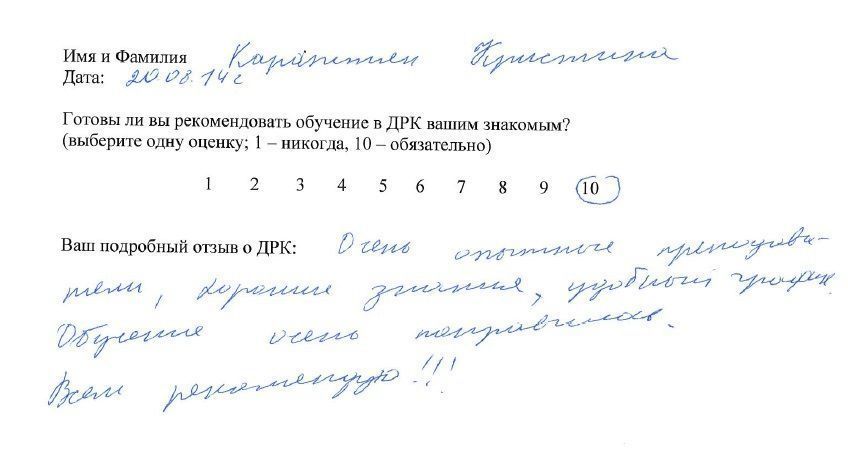 Имя и Фамилия Карапетян Кристина
Дата: 20.08.14г
Готовы ли вы рекомендовать обучение в ДРК вашим знакомым?
(выберите одну оценку; 1 – никогда, 10 – обязательно)
1 2 3 4 5 6 7 8 9 10
Ваш подробный отзыв о ДРК: Очень опытные преподава-
тели, хорошие знания, удобный график.
Обучение очень понравилось.
Всем рекомендую!!!